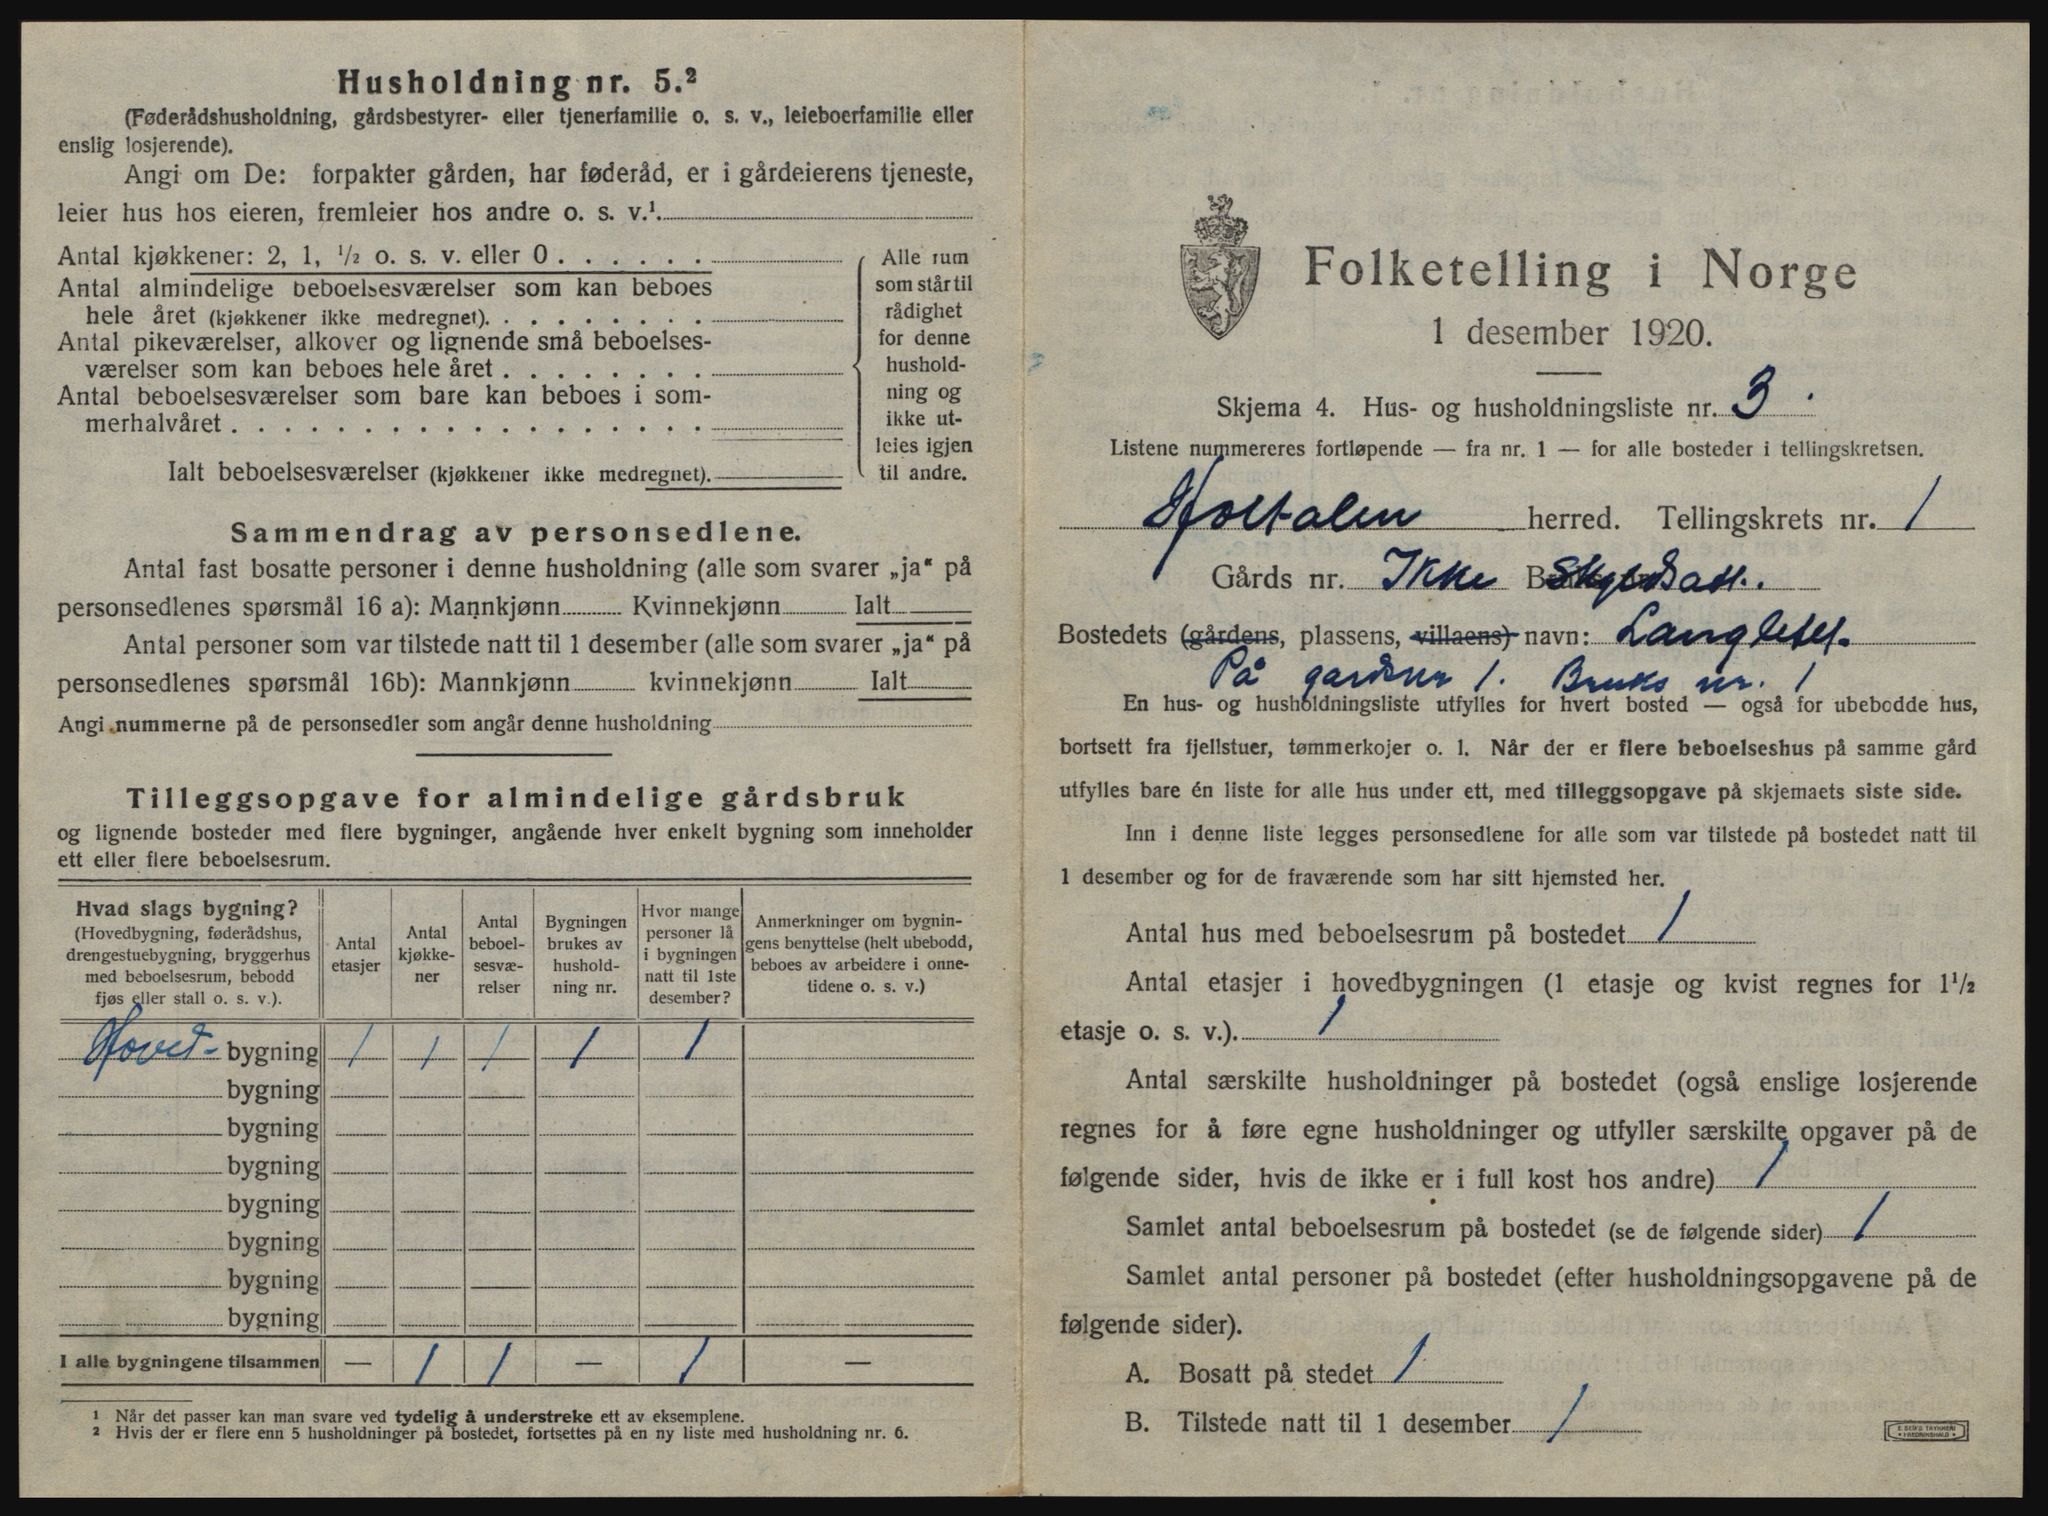 Husholdning nr. 5.²
(Føderådshusholdning, gårdsbestyrer- eller tjenerfamilie o. s. v., leieboerfamilie eller
enslig losjerende).
Angi om De: forpakter gården, har føderåd, er i gårdeierens tjeneste,
leier hus hos eieren, fremleier hos andre o. s. v.¹.
Antal kjøkkener: 2, 1, ½ o. s. v. eller 0 . . . . . .
Antal almindelige beboelsesværelser som kan beboes
hele året (kjøkkener ikke medregnet). . . . . . . . .
Antal pikeværelser, alkover og lignende små beboelses-
værelser som kan beboes hele året . . . . . . . .
Antal beboelsesværelser som bare kan beboes i som-
merhalvåret . . . . . . . . . . . . . . . . . .
Ialt beboelsesværelser (kjøkkener ikke medregnet).
Alle rum
som står til
rådighet
for denne
hushold-
ning og
ikke ut-
leies igjen
til andre.
Sammendrag av personsedlene.
Antal fast bosatte personer i denne husholdning (alle som svarer „ja“ på
personsedlenes spørsmål 16 a): Mannkjønn Kvinnekjønn Ialt
Antal personer som var tilstede natt til 1 desember (alle som svarer „ja“ på
personsedlenes spørsmål 16b): Mannkjønn kvinnekjønn Ialt
Angi nummerne på de personsedler som angår denne husholdning
Tilleggsopgave for almindelige gårdsbruk
og lignende bosteder med flere bygninger, angående hver enkelt bygning som inneholder
ett eller flere beboelsesrum.
Hvad slags bygning?
(Hovedbygning, føderådshus,
drengestuebygning, bryggerhus
med beboelsesrum, bebodd
fjøs eller stall o. s. v.).
Antal
etasjer
Antal
kjøkke-
ner
Antal
beboel-
sesvæ-
relser
Bygningen
brukes av
hushold-
ning nr.
Hvor mange
personer lå
i bygningen
natt til 1ste
desember?
Anmerkninger om bygnin-
gens benyttelse (helt ubebodd,
beboes av arbeidere i onne-
tidene o. s. v.)
Hoved- bygning 1 1 1 1 1
bygning
bygning
bygning
bygning
bygning
bygning
bygning
I alle bygningene tilsammen — 1 1 — 1 —
¹ Når det passer kan man svare ved tydelig å understreke ett av eksemplene.
² Hvis der er flere enn 5 husholdninger på bostedet, fortsettes på en ny liste med husholdning nr. 6.
Folketelling i Norge
1 desember 1920.
Skjema 4. Hus- og husholdningsliste nr. 3.
Listene nummereres fortløpende — fra nr. 1 — for alle bosteder i tellingskretsen.
Holtalen herred. Tellingskrets nr. 1
Gårds nr. Ikke Skyldsatt.
Bostedets (gårdens, plassens, villaens) navn: Langletet.
På gardsnr 1. Bruks nr. 1
En hus- og husholdningsliste utfylles for hvert bosted — også for ubebodde hus,
bortsett fra fjellstuer, tømmerkojer o. l. Når der er flere beboelseshus på samme gård
utfylles bare én liste for alle hus under ett, med tilleggsopgave på skjemaets siste side.
Inn i denne liste legges personsedlene for alle som var tilstede på bostedet natt til
1 desember og for de fraværende som har sitt hjemsted her.
Antal hus med beboelsesrum på bostedet 1
Antal etasjer i hovedbygningen (1 etasje og kvist regnes for 1½
etasje o. s. v.). 1
Antal særskilte husholdninger på bostedet (også enslige losjerende
regnes for å føre egne husholdninger og utfyller særskilte opgaver på de
følgende sider, hvis de ikke er i full kost hos andre) 1
Samlet antal beboelsesrum på bostedet (se de følgende sider) 1
Samlet antal personer på bostedet (efter husholdningsopgavene på de
følgende sider).
A. Bosatt på stedet 1
B. Tilstede natt til 1 desember 1